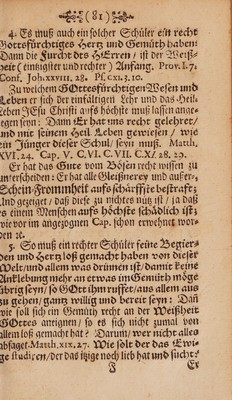 (81)
4. Es muß auch ein solcher Schüler ein recht
Gottsfürchtiges Hertz und Gemüth haben:
Dann die Furcht des HErren / ist der Weiß-
heit (einigster und rechter) Anfang. Prov. I. 7.
Conf. Joh. XXVIII, 28. Ps. CXI. 3, 10.
Zu welchem GOttesfürchtigen Wesen und
Leben er sich der einfältigen Lehr und das Heil.
Leben JEsu Christi aufs höchste muß lassen ange-
legen seyn: Dann Er hat uns recht gelehret/
und mit seinem Heil. Leben gewiesen / wie
ein Jünger dieser Schul / seyn muß. Matth.
XVI. 24. Cap. V. C. VI. C. VII. C. X / 28. 29.
Er hat das Gute vom Bösen recht wissen zu
unterscheiden: Er hat alle Gleißnerey und ausser-
Schein-Frommheit aufs schärffste bestraft;
Und gezeiget / daß diese zu nichts nütz ist / ja daß
es einen Menschen aufs höchste schädlich ist;
wie vor im angezogenen Cap. schon erwehnet wor-
den ꝛc.
5. So muß ein rechter Schüler seine Begier-
den und Hertz loß gemacht haben von dieser
Welt / und allem was drinnen ist / damit keine
Anklebung mehr an etwas im Gemüth möge
übrig seyn / so GOtt ihm ruffet / aus allem aus
zu gehen / gantz willig und bereit seyn: Dañ
wie soll sich ein Gemüth recht an der Weißheit
GOttes aneignen / so es sich nicht zumal von
allem loß gemacht hat? Darum / wer nicht alles
absaget. Matth. XIX. 27. Wie solt der das Ewi-
ge studiren / der das itzige noch lieb hat und sucht?
F
Er